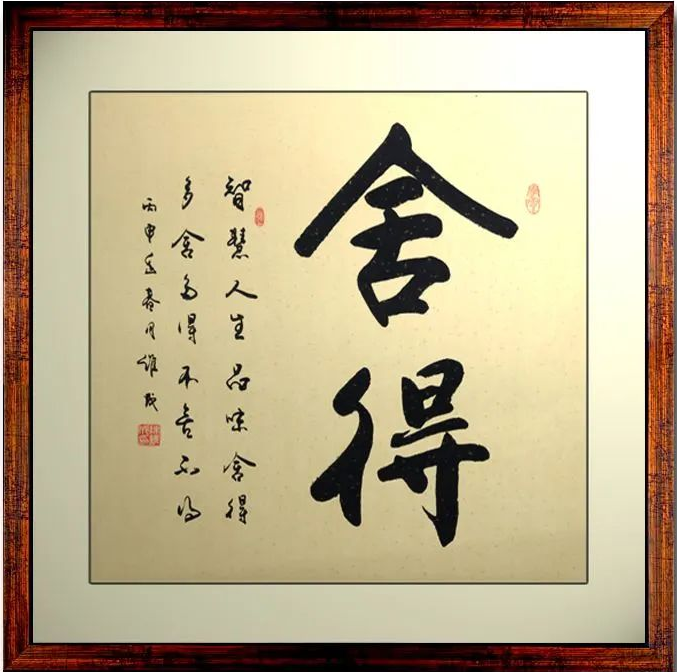 舍得
智慧人生品味舍得
多舍多得不舍不得
丙申年春月維